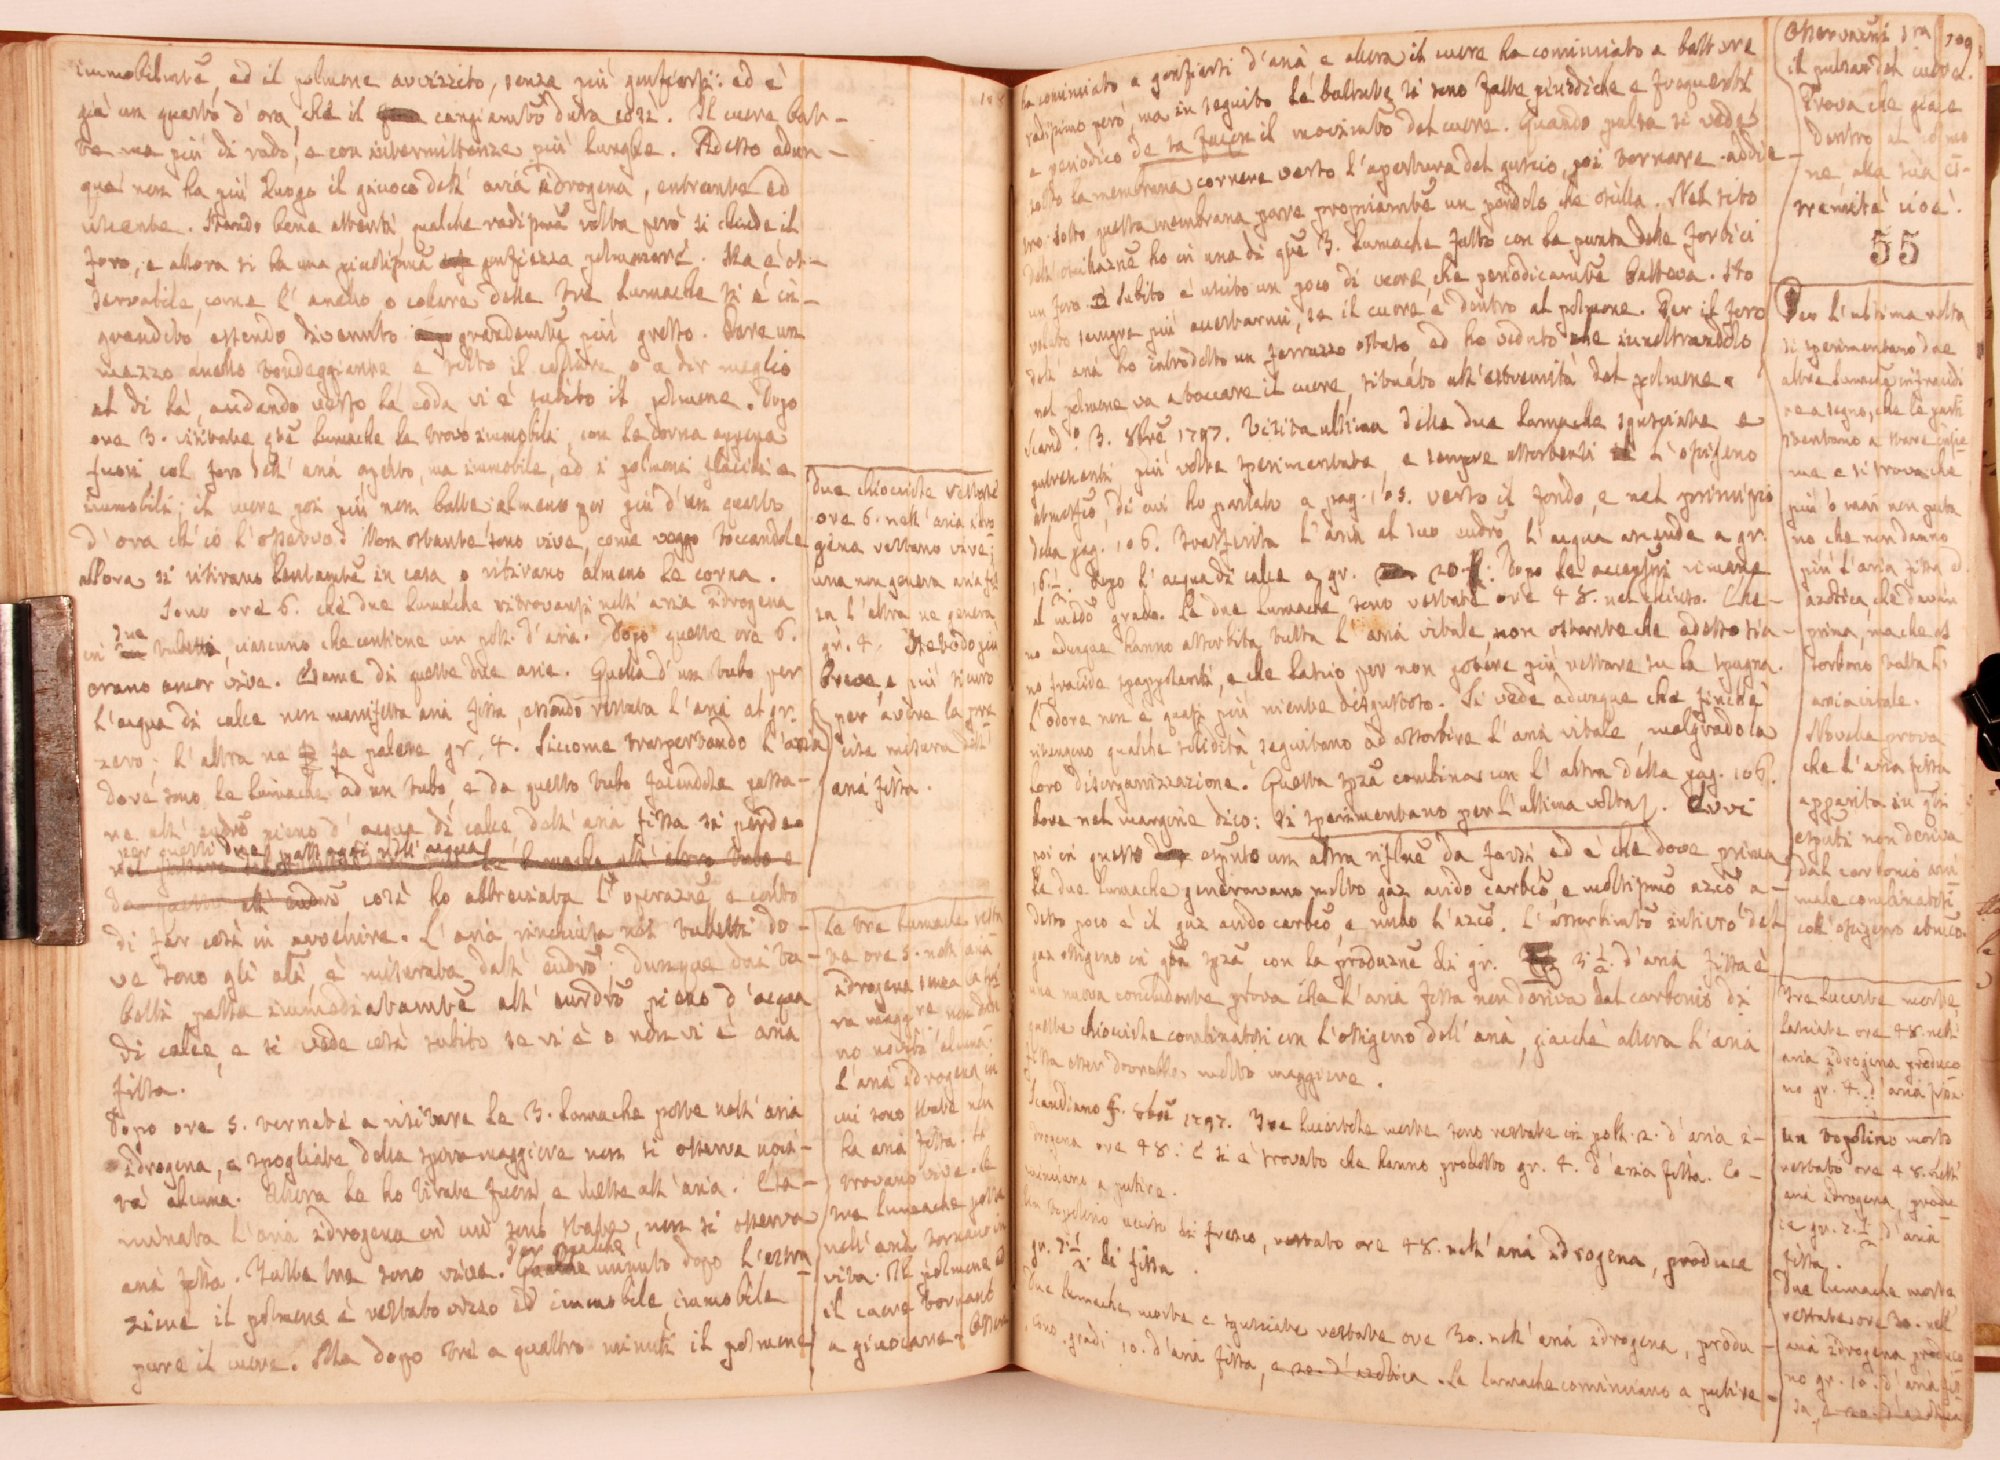 immobilmte, ed il polmone avvizzito, senza più gonfiarsi: ed è
già un quarto d'ora, che il cangiamto dura così. Il cuore bat-
te ma più di rado, e con intermittenze più lunghe. Adesso adun-
que non ha più luogo il giuoco dell' aria idrogena, entrante ed
uscente. Stando bene attenti qualche radissma volta però si chiude il
foro, e allora si ha una piccolissma gonfiezza polmonare. Ma è os-
servabile, come l' anello o colore delle tre lumache si è in-
grandito essendo divenuto grandemte più grosso. Pare un
mezzo anello tondeggiante e sotto il collare, o a dir meglio
al di là, andando verso la coda vi è subito il polmone. Dopo
ore 3. visitate que lumache le trovo immobili, con le corna appena
fuori, col foro dell' aria aperto, ma immobile, ed i polmoni flacidi e
immobili; il cuore poi più non batte almeno per più d'un quarto
d'ora ch'io l'osservo. Non ostante sono vive, come veggo toccandole
allora si ritirano lentamte in casa o ritirano almeno le corna.
Sono ore 6. che due lumache ritrovansi nell' aria idrogena
in due tubetti, ciascuno che contiene un poll. d'aria. Dopo queste ore 6.
erano ancor vive. Esame di queste due arie. Quella d'un tubo per
l'acqua di calce non manifesta aria fissa, essendo restata l'aria al gr.
zero; l'altra ne fa palese gr. 4. Siccome trasportando l'aria
dove sono le lumache ad un tubo, e da questo tubo facendola passa-
re all' eudro pieno d'acqua di calce, dell' aria fissa si perde
per questi due passaggi nell' acqua
così ho abbreviata l' operazne, e conto
di far così in avvenire. L'aria rinchiusa nei tubetti do-
ve sono gli ali, è misurata dall' eudro: dunque dai tu-
betti passa immediatamte all' eudro pieno d'acqua
di calce, e si vede così subito se vi è o non vi è aria
fissa.
Dopo ore 5. tornate a visitare le 3. lumache poste nell' aria
idrogena, e spogliate della spira maggiore non si osserva novi-
tà alcuna. Allora le ho tirate fuori e messe all' aria. Esa-
minata l'aria idrogena in cui sono state, non si osserva
aria fissa. Tutte tre sono vive. Per qualche minuto dopo l'estra
zione il polmone è restato vizzo ed immobile, immobile
pure il cuore. Ma dopo tre a quattro minuti il polmone
due chiocciole restate
ore 6. nell' aria idro
gena restano vive;
una non genera aria fis
sa l'altra ne genera
gr. 4. Metodo più
breve, e più sicuro
per avere la pre
cisa misura dell'
aria fissa.
Le tre lumache resta
te ore 5. nell' aria
idrogena senza la spi
ra magg.re non dan
no novità alcuna.
L'aria idrogena in
cui sono state non
ha aria fissa. Si
trovano vive. Le
tre lumache poste
nell'aria tornano in
vita. Il polmone e
il cuore tornano
a giuocare. Osser
ha cominciato a gonfiarsi d'aria e allora il cuore ha cominciato a battere
radissimo però, ma in seguito le battute si sono fatte periodiche e frequenti
e periodico de sa facen il movimto del cuore. Quando pulsa si vede
sotto la membrana correre verso l'apertura del guscio, poi tornare addie-
tro: sotto questa membrana pare propriamte un pendolo che oscilla. Nel sito
dell' oscillazne ho in una di que 3. lumache fatto con la punta delle forbici
un foro e subito è uscito un poco di cuore che periodicamte batteva. Ho
voluto sempre più accertarmi, se il cuore è dentro al polmone. Per il foro
dell' aria ho introdotto un ferruzzo ottuso ed ho veduto che inoltrandolo
nel polmone va a toccare il cuore, situato all'estremità del polmone.
Scand.o 3. 8bre 1797. Visita ultima delle due lumache sgusciate e
putrescenti più volte sperimentate, e sempre assorbenti l'ossigeno
atmosfco, di cui ho parlato a pag. 105. verso il fondo, e nel principio
della pag. 106. Trasferita l'aria al suo eudro, l'acqua ascende a gr.
16 1/2. Dopo l'acqua di calce a gr. 20. Dopo le accensni rimane
al medo grado. Le due lumache sono restate ore 48. nel chiuso. Che-
no adunque hanno assorbita tutta l'aria vitale non ostante che adesso sia-
no fracide spappolanti, e che lascio per non potere più restare su la spugna.
L'odore non è quasi più niente disgustoso. Si vede adunque che finchè
ritengono qualche solidità, seguitano ad assorbire l'aria vitale malgrado la
loro disorganizzazione. Questa spza combinar con l'altra della pag. 106.
dove nel margine dico: si sperimentano per l'ultima volta. Evvi
poi in questo esputo un altra riflne da farsi ed è che dove prima
le due lumache generavano molto gaz acido carbco, e moltissmo azco, a-
desso poco è il gaz acido carbco, e nullo l'azco. L'assorbimto intiero del
gaz ossigeno in qta spza, con la produzne di gr. 3 1/2. d'aria fissa è
una nuova concludente prova che l'aria fissa non deriva dal carbonio di
queste chiocciole combinatosi con l'ossigeno dell' aria, giacchè allora l'aria
fissa esser dovrebbe molto maggiore.
Scandiano 5. 8bre 1797. Tre lucertole morte sono restate in poll. 2. d'aria i-
drogena ore 48: e si è trovato che hanno prodotto gr. 4. d'aria fissa. Co-
minciano a putire.
Un topolino ucciso di fresco, restato ore 48. nell' aria idrogena, produce
gr. 2 1/2. di fissa.
Due lumache morte e sgusciate restate ore 30. nell' aria idrogena, produ-
cono gradi 10. d'aria fissa, e 20. d'azotica. Le lumache cominciano a putire.
Osservazni sra 109
il pulsar del cuore.
Prova che giace
dentro al polmo
ne alla sua es-
tremità cioè.
55
Per l'ultima volta
si sperimentano due
altre lumache infracidi
te a segno, che le parti
stentano a stare insie-
me e si trova che
più o mai non puta
no che non danno
più l'aria fissa o
azotica, che davan
prima, ma che as
sorbono tutta l'
aria vitale.
Novella prova
che l'aria fissa
apparita in qti
esputi non deriva
dal carbonio ani
male combinatosi
coll'ossigeno atmco.
Tre lucerte morte,
lasciate ore 48. nell'
aria idrogena produco
no gr. 4. d'aria fissa
Un topolino morto
restato ore 48. nell'
aria idrogena, produ
ce gr. 2 1/2 d'aria
fissa.
Due lumache morte
restate ore 30. nell'
aria idrogena produco
no gr. 10. d'aria fis
sa, e 20. d'azotica